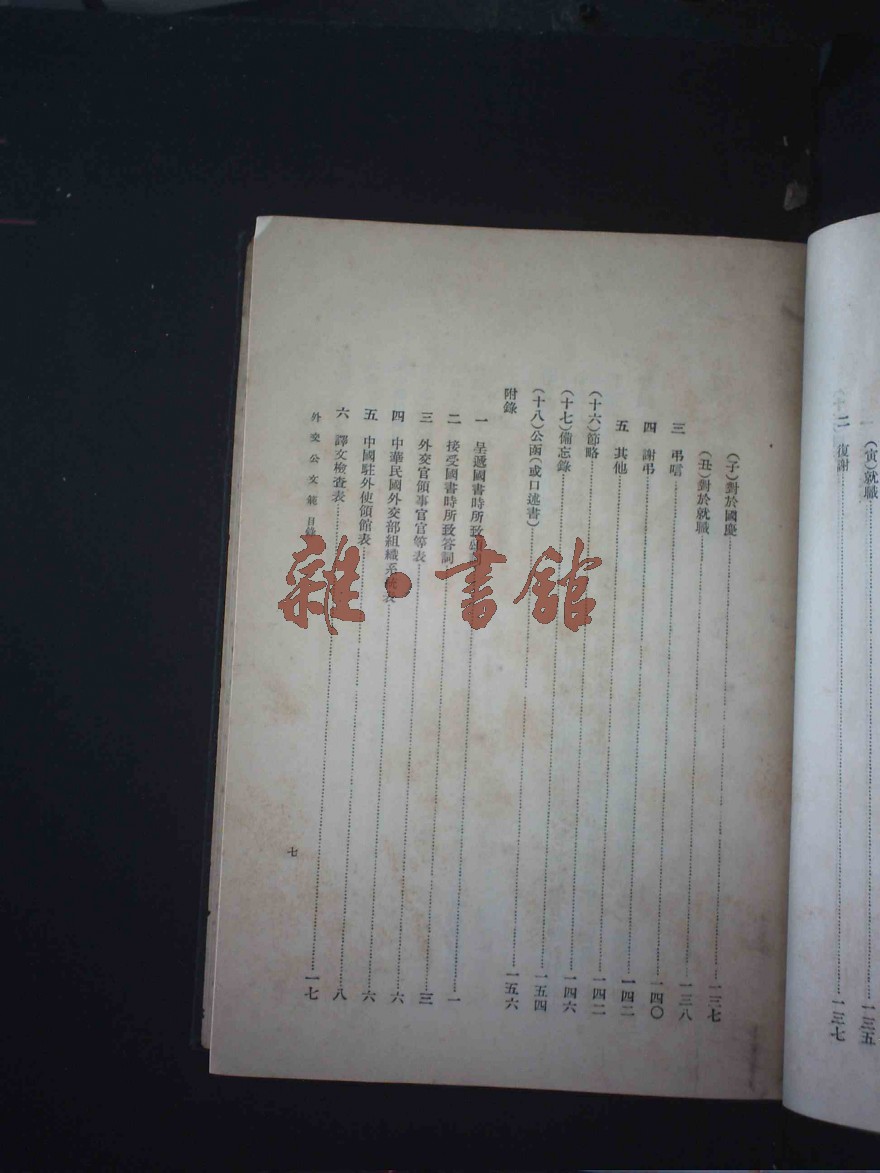 (寅)就職……一三五
二 復謝……一三七
(子)對於國慶……一三七
(丑)對於就職……一三八
三 弔唁……一四〇
四 謝弔……一四二
五 其他……一四二
(十六)節略……一四六
(十七)備忘錄……一五四
(十八)公函(或口述書)……一五六
附錄
一 呈遞國書時所致……一
二 接受國書時所致答詞……三
三 外交官領事官官等表……六
四 中華民國外交部組織系統表……六
五 中國駐外使領館表……八
六 譯文檢查表……一七
外交公文範 目錄
七
雜·書館